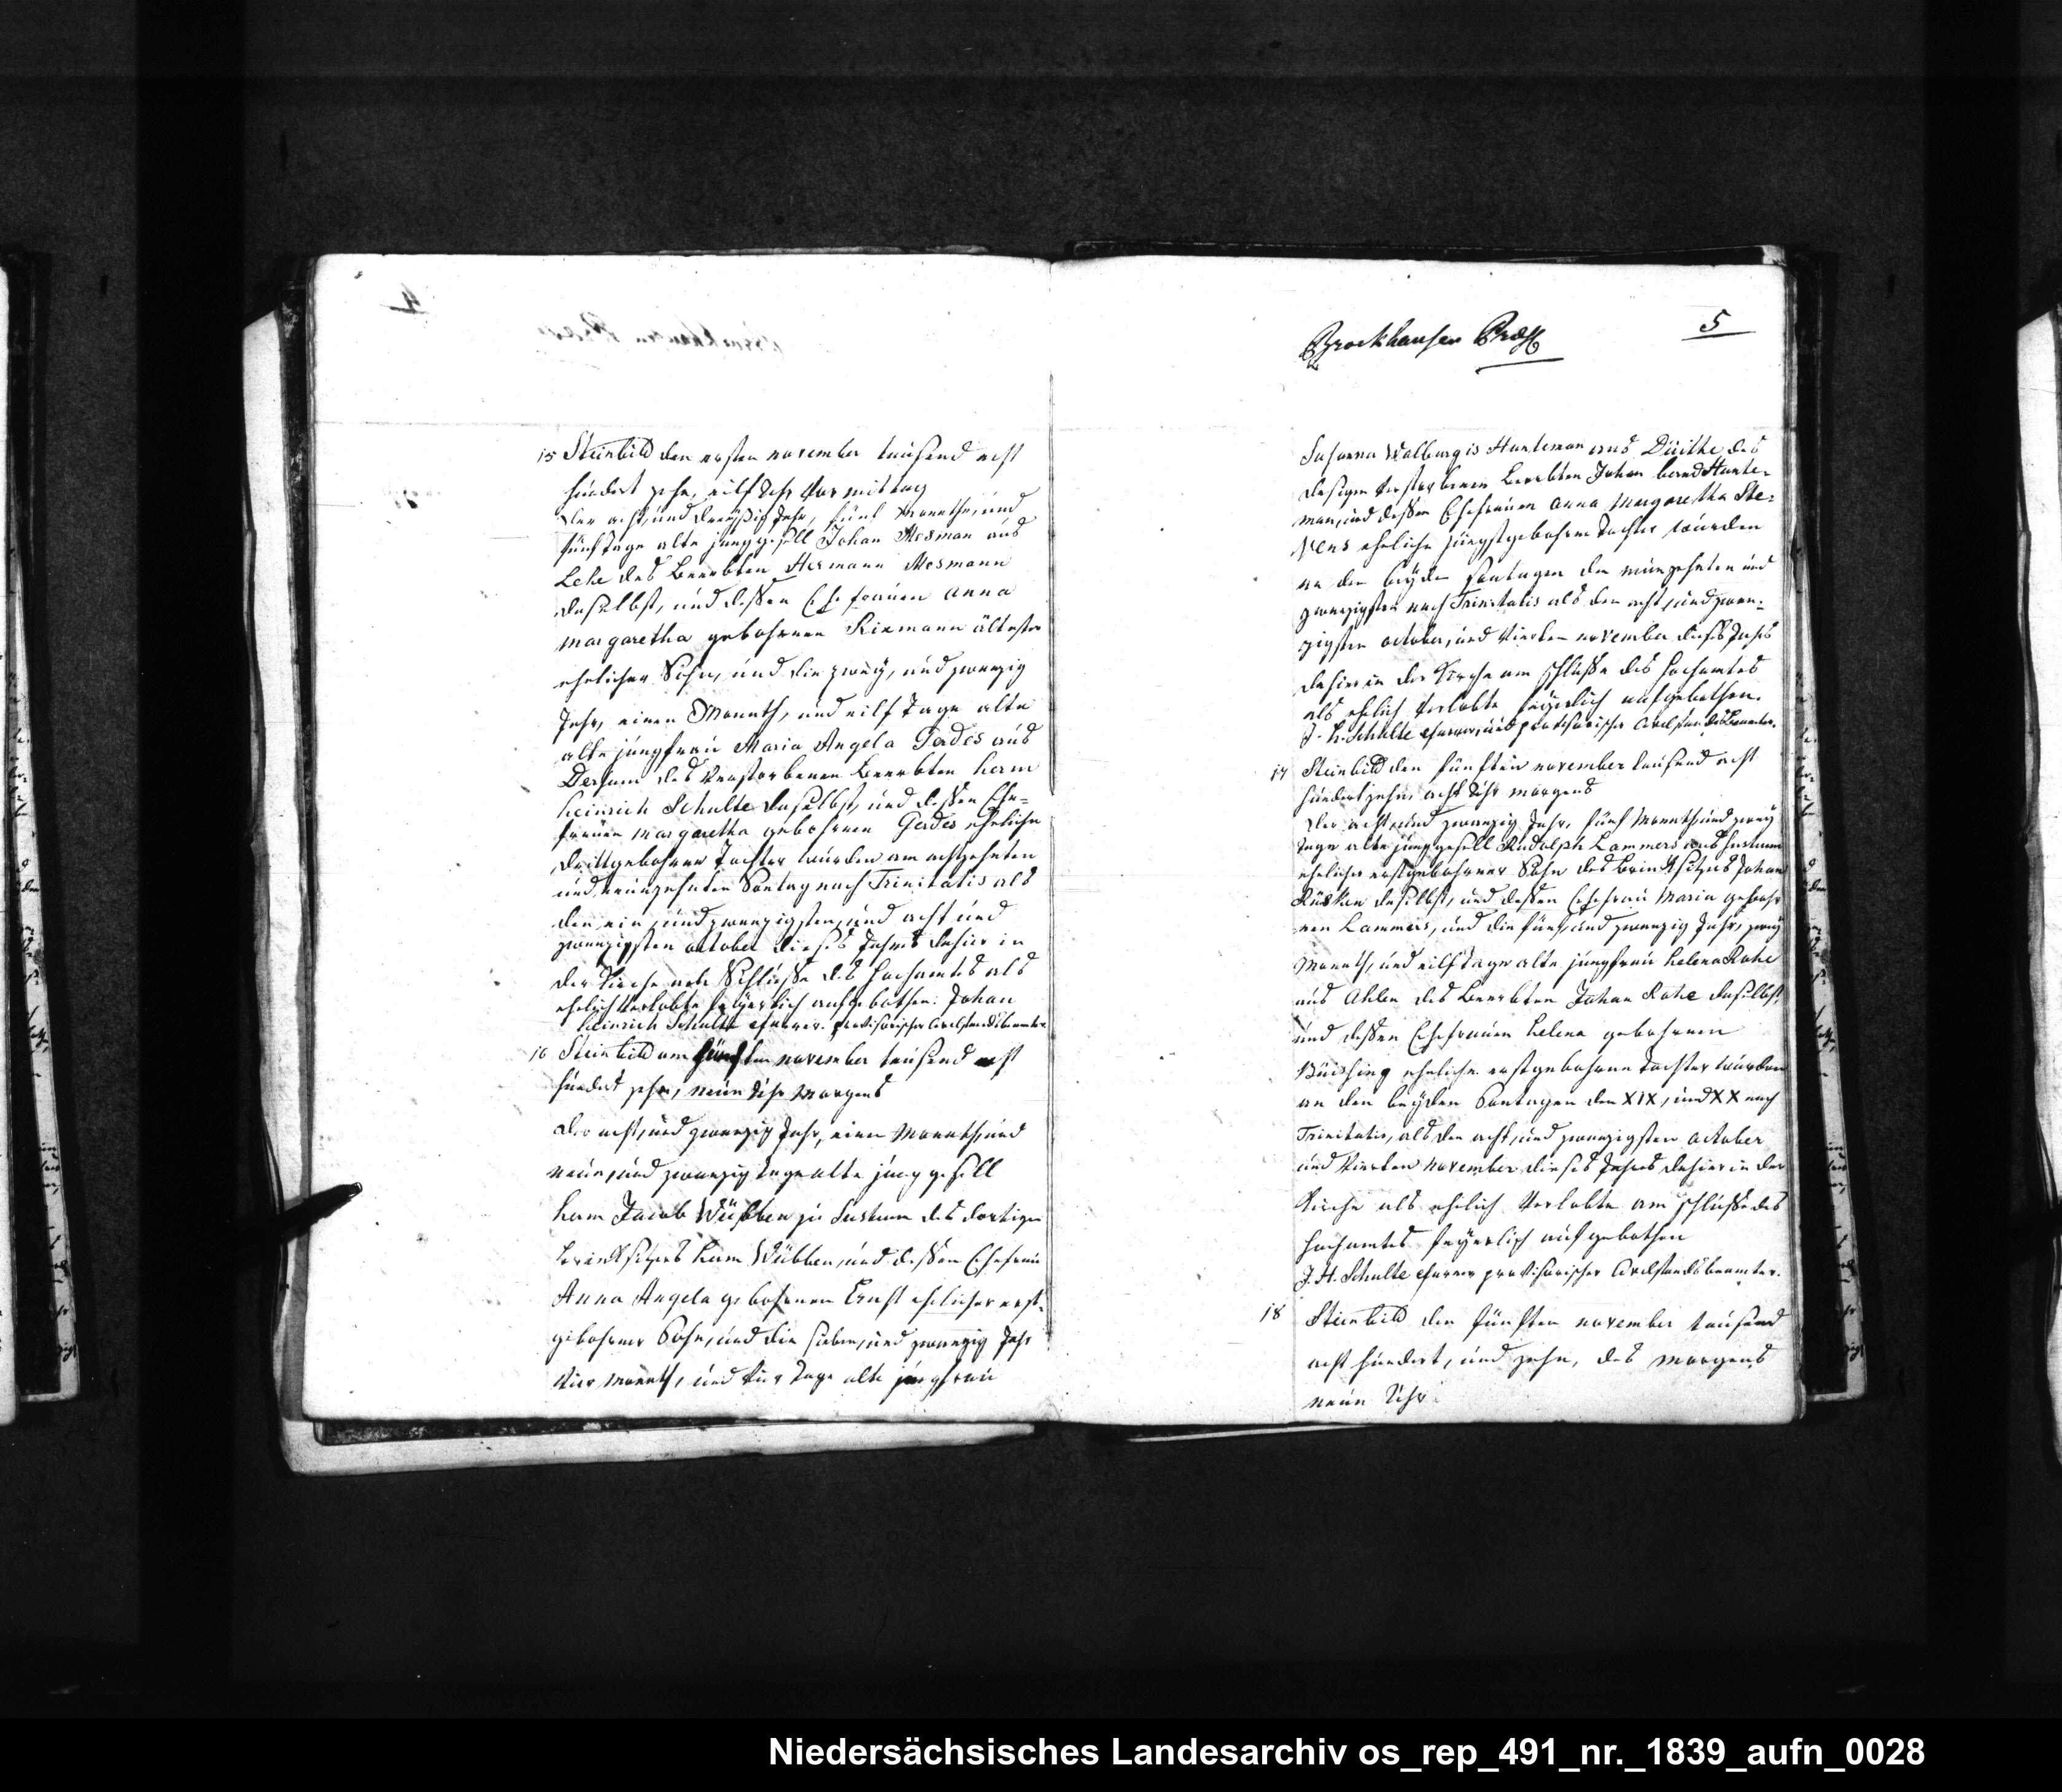 15 Steinbild den ersten november tausend acht
hundert zehn, eilf Uhr Vormittag
Der acht, und dreyßig Jahr, fünf Monathe, und
fünf Tage alte junggesell Johan Mesman aus
Lehe des Beerbten Hermann Mesmann
daselbst, und deßen Ehefrauen Anna
margaretha gebohrnen Rixmann ältester
ehelicher Sohn, und die zwey, und zwanzig
Jahr, einen Monath, und eilf Tage alte
alte jungfrau Maria Angela Gerdes aus
Dersum des verstorbenen Beerbten herm
heinrich Schulte daselbst, und deßen Ehe-
frauen margaretha gebohrnen Gerdes eheliche
drittgebohrne Tochter wurden am achtzehnten
und neunzehnten Sontag nach Trinitatis als
den ein, und zwanzigsten, und acht und
zwanzigsten october dieses Jahres dahier in
der Kirche nach Schluße des hochamtes als
ehelich Verlobte feyerlich aufgebothen. Johan
heinrich Schulte pfarrer. provisorischer Civilstandsbeamter.
16 Steinbild am fünften november tausend acht
hundert zehn, neun Uhr Morgens
der acht, und zwanzig Jahr, einen Monath, und
neun, und zwanzig tage alte jung gesell
herm Jacob Wübben zu Sustrum des dortigen
brinksitzers herm Wübben, und deßen Ehefrau
Anna Angela gebohrnen Ernst ehelicher erst-
gebohrner Sohn, und die sieben, und zwanzig Jahr
vier Monath, und vier Tage alte jungfrau
Brockhausen Präs
5
Susanna Walburgis Hanteman aus Düithe des
dasigen verstorbenen Beerbten Johan bernd Hante-
man, und deßen Ehefrauen Anna Margaretha Ste-
vens eheliche jüngstgebohrne Tochter wurden
an den beyden Sontagen den neunzehnten und
zwanzigsten nach Trinitatis als den acht, und zwan-
zigsten october, und vierten november dieses Jahres
dahier in der Kirche am schluße des hochamtes
als ehelich Verlobte feyerlich aufgebothen.
J. H. Schulte pfarrer, und provisorischer Civilstandsbeamter.
17 Steinbild den fünften november tausend acht
hundert zehn, acht Uhr morgens
Der acht, und zwanzig Jahr, fünf Monath, und zwey
tage alte junggesell Rudolph Lammers aus Sustrum
ehelicher erstgebohrner Sohn des brinksitzers Johan
Rüsken daselbst, und deßen Ehefrau Maria gebohr
nen Lammers, und die fünf, und zwanzig Jahr, zwey
Monath, und eilf Tage alte jungfrau helena Rahe
aus Ahlen des Beerbten Johan Rahe daselbst
und deßen Ehefrauen helena gebohrnen
Büshing eheliche erstgebohrne Tochter wurden
an den beyden Sontagen den XIX, und XX nach
Trinitatis, als den acht, und zwanzigsten october
und vierten november dieses Jahres dahier in der
Kirche als ehelich Verlobte am schluße des
hochamtes feyerlich aufgebothen
J. H. Schulte pfarrer provisorischer Civilstandsbeamter.
18 Steinbild den fünften november tausend
acht hundert, und zehn, des morgens
neun Uhr.
Niedersächsisches Landesarchiv os_rep_491_nr._1839_aufn_0028